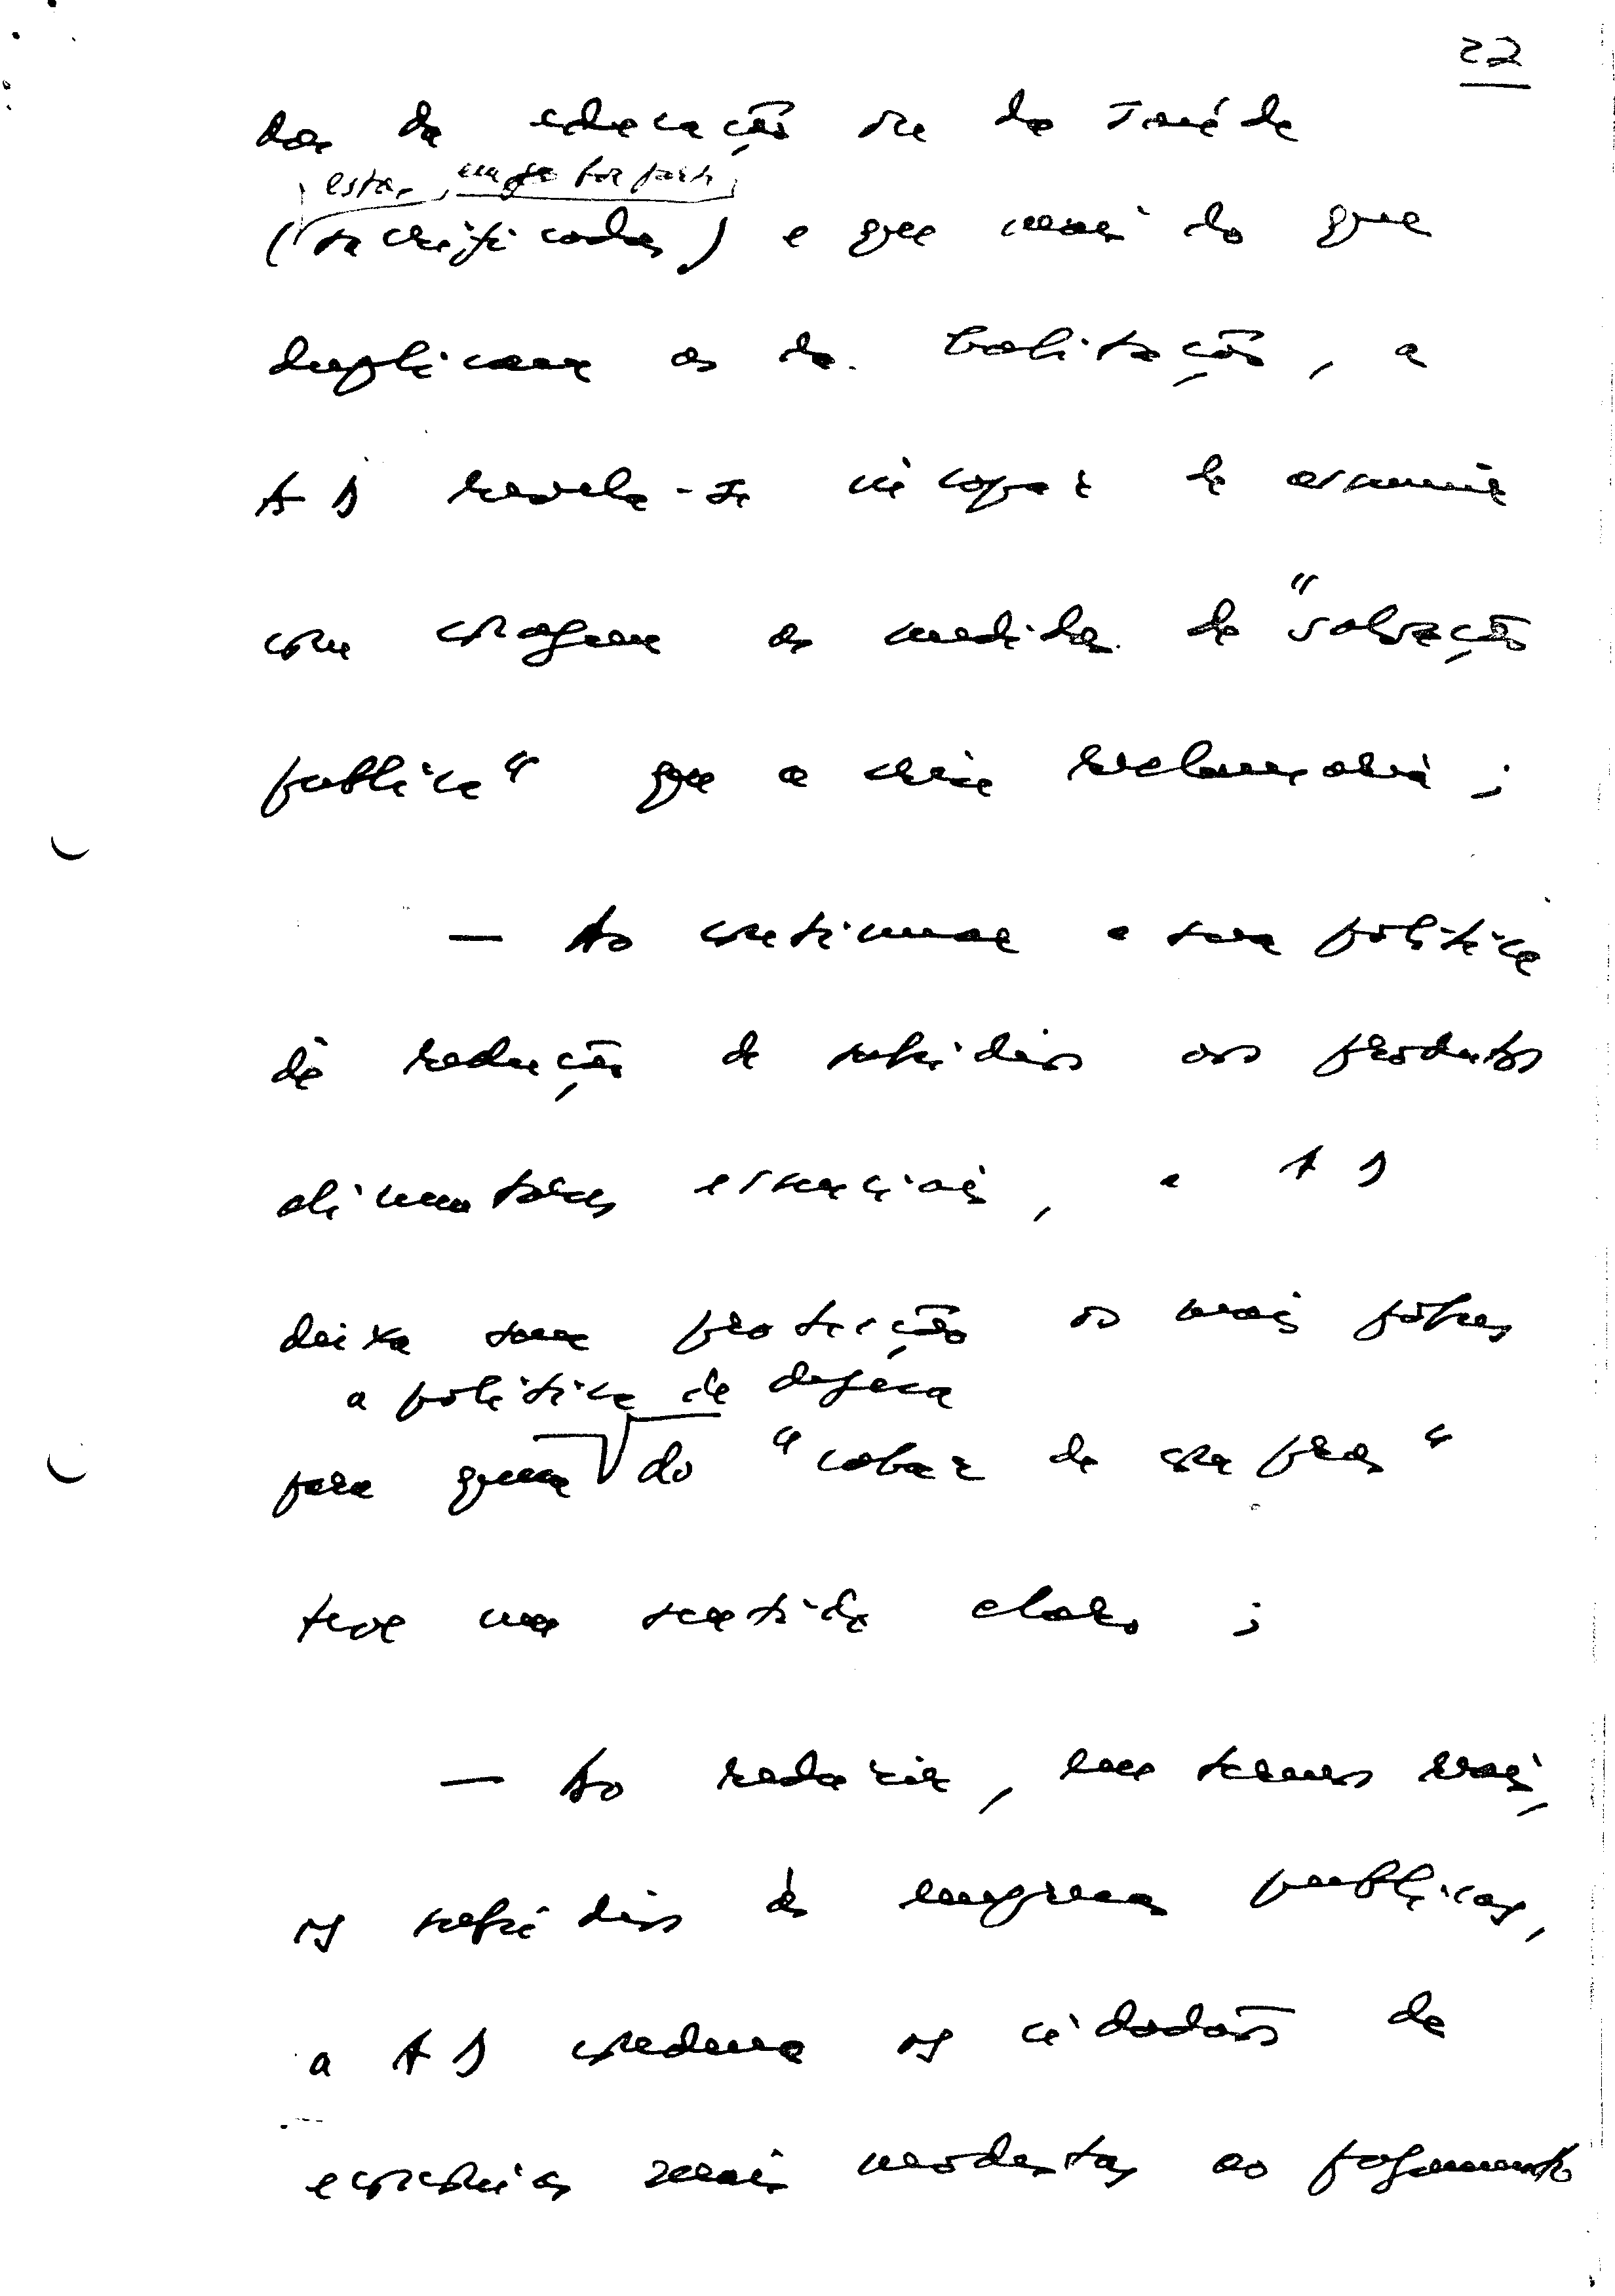 22
das da educação ou da saúde
estas,
(sacrificadas) e que mais do que
duplicam os da habitação, a
AD revela-se incapaz de assumir
com coragem as medidas de "salvação
pública" que a crise reclamaria;
— Ao continuar a sua política
de redução de subsídios aos produtos
alimentares essenciais, a AD
deixa sem protecção os mais pobres
a política de defesa
para quem do "cabaz de compras"
teve um sentido claro;
— Ao reduzir, em termos reais,
os subsídios às empresas públicas,
a AD condena os cidadãos de
economias mais modestas ao pagamento